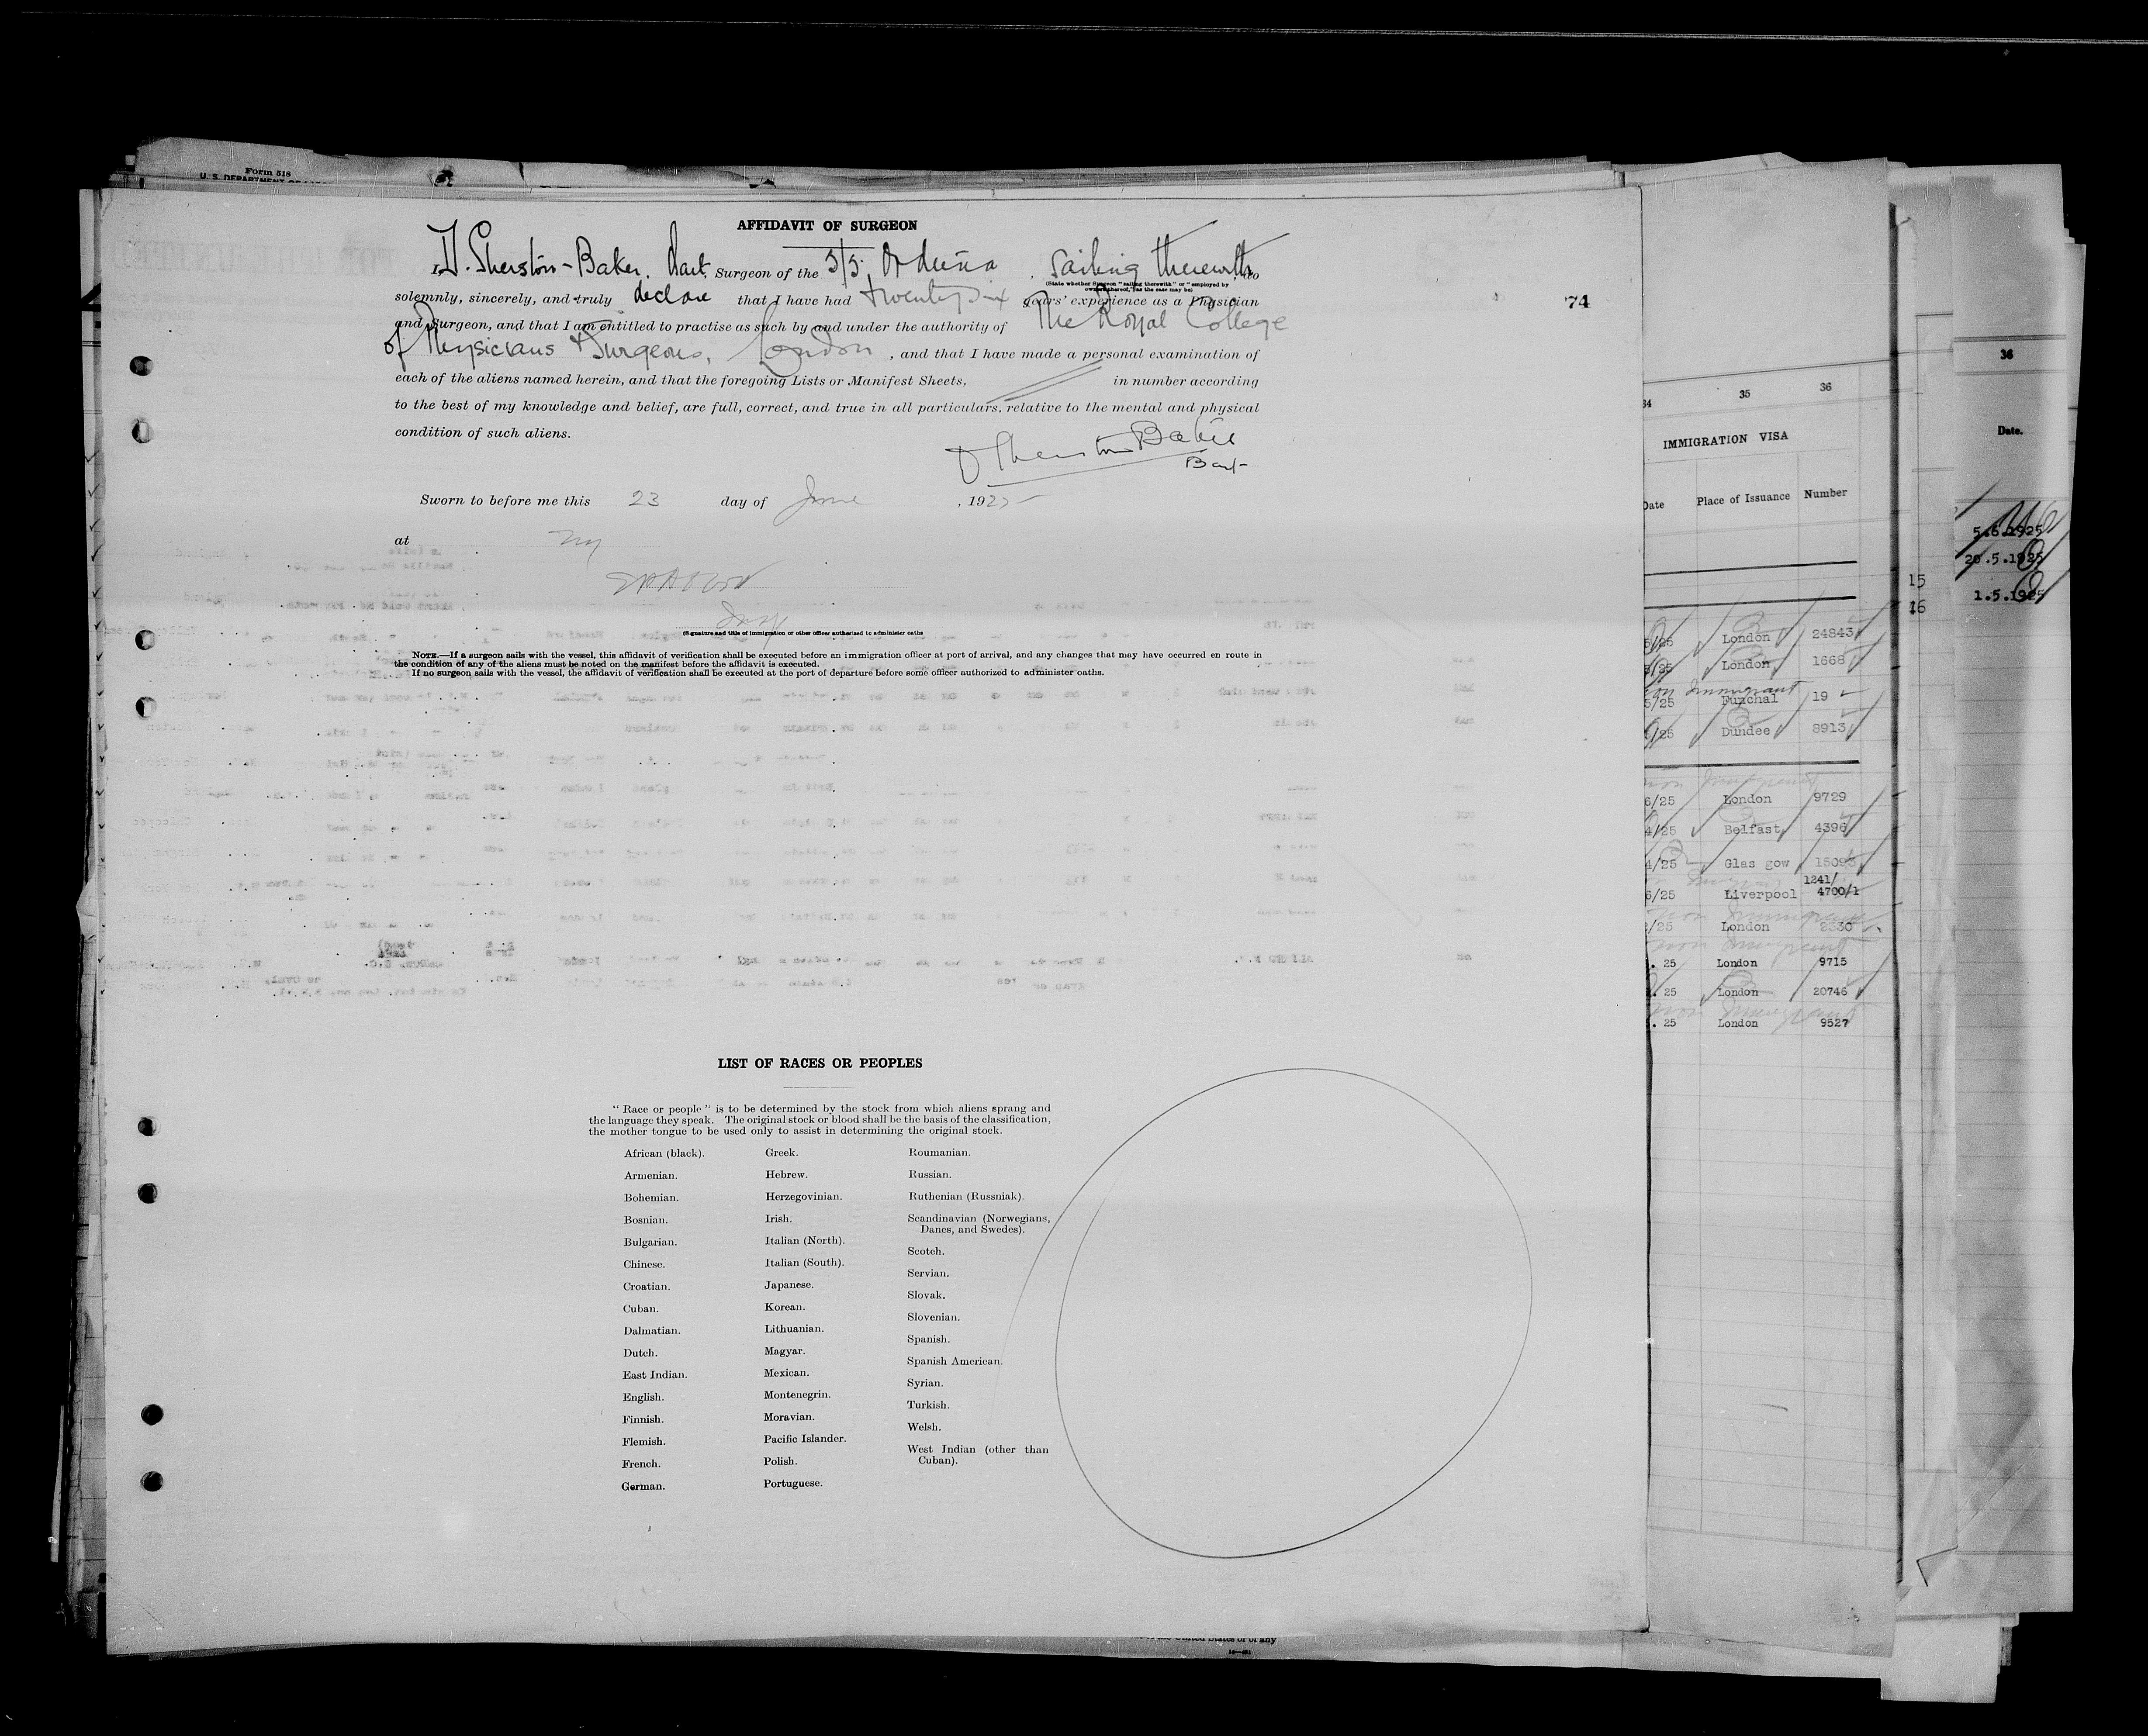 Form 518
AFFIDAVIT OF SURGEON
I, D. Sherston-Baker. Bart. Surgeon of the S/S. Orduña, sailing therewith, do
(State whether Surgeon "sailing therewith" or "employed by
owners thereof," as the case may be)
solemnly, sincerely, and truly declare that I have had twenty six years' experience as a Physician
74
and Surgeon, and that I am entitled to practise as such by and under the authority of The Royal College
of Physicians & Surgeons, London, and that I have made a personal examination of
each of the aliens named herein, and that the foregoing Lists or Manifest Sheets, in number according
to the best of my knowledge and belief, are full, correct, and true in all particulars, relative to the mental and physical
condition of such aliens.
D Sherston Baker
Bart
Sworn to before me this 23 day of June, 1925
at NY
Insp
(Signature and title of immigration or other officer authorized to administer oaths
NOTE.—If a surgeon sails with the vessel, this affidavit of verification shall be executed before an immigration officer at port of arrival, and any changes that may have occurred en route in
the condition of any of the aliens must be noted on the manifest before the affidavit is executed.
If no surgeon sails with the vessel, the affidavit of verification shall be executed at the port of departure before some officer authorized to administer oaths.
LIST OF RACES OR PEOPLES
"Race or people" is to be determined by the stock from which aliens sprang and
the language they speak. The original stock or blood shall be the basis of the classification,
the mother tongue to be used only to assist in determining the original stock.
African (black).
Armenian.
Bohemian.
Bosnian.
Bulgarian.
Chinese.
Croatian.
Cuban.
Dalmatian.
Dutch.
East Indian.
English.
Finnish.
Flemish.
French.
German.
Greek.
Hebrew.
Herzegovinian.
Irish.
Italian (North).
Italian (South).
Japanese.
Korean.
Lithuanian.
Magyar.
Mexican.
Montenegrin.
Moravian.
Pacific Islander.
Polish.
Portuguese.
Roumanian.
Russian.
Ruthenian (Russniak).
Scandinavian (Norwegians,
Danes, and Swedes).
Scotch.
Servian.
Slovak.
Slovenian.
Spanish.
Spanish American.
Syrian.
Turkish.
Welsh.
West Indian (other than
Cuban).
34 35 36
IMMIGRATION VISA
Date Place of Issuance Number
5/25 London 24843
5/25 London 1668
non Immigrant
5/25 Funchal 19
/25 Dundee 8913
non Immigrant
6/25 London 9729
4/25 Belfast 4396
4/25 Glas gow 15093
1241/
6/25 Liverpool 4700/1
non Immigrant
/25 London 2330
non Immigrant
. 25 London 9715
. 25 London 20746
non Immigrant
. 25 London 9527
15
16
36
Date.
5.6.1925
20.5.1925
1.5.1925